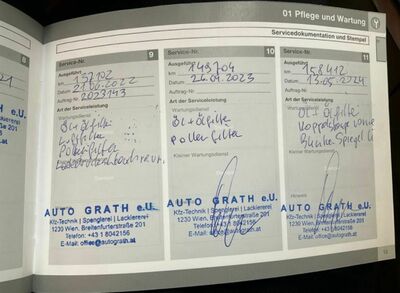 01 Pflege und Wartung
Servicedokumentation und Stempel
8
21
TH e.U.
Lackiererei
traße 201
2156
ath.at
Service-Nr. 9
Ausgeführt
km 137102
Datum 21.06.2022
Auftrag-Nr. 2023143
Art der Serviceleistung
Öl+Ölfilter
Luftfilter
Pollenfilter
Kleiner Wartungsdienst
AUTO GRATH e.U.
Kfz-Technik | Spenglerei | Lackiererei
1230 Wien, Breitenfurterstraße 201
Telefon: +43 1 8042156
E-Mail: office@autograth.at
Service-Nr. 10
Ausgeführt
km 148704
Datum 26.04.2023
Auftrag-Nr.
Art der Serviceleistung
Öl+Ölfilter
Pollenfilter
Kleiner Wartungsdienst
AUTO GRATH e.U.
Kfz-Technik | Spenglerei | Lackiererei
1230 Wien, Breitenfurterstraße 201
Telefon: +43 1 8042156
E-Mail: office@autograth.at
Service-Nr. 11
Ausgeführt
km 158412
Datum 13.05.2024
Auftrag-Nr.
Art der Serviceleistung
Öl+Ölfilter
Blinker Spiegel Li
Hinweis
AUTO GRATH e.U.
Kfz-Technik | Spenglerei | Lackiererei
1230 Wien, Breitenfurterstraße 201
Telefon: +43 1 8042156
E-Mail: office@autograth.at